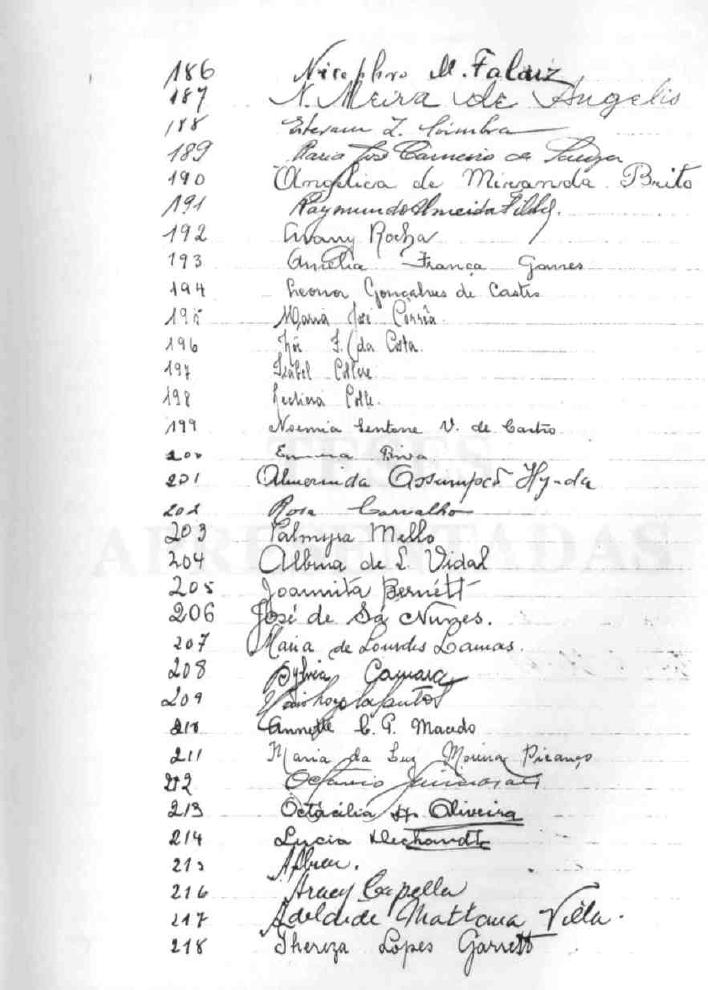 186 M. Falaiz
187 N. Meira de Angelis
188 Coimbra
189 Maria José Carneiro de Souza
190 Angélica de Miranda Brito
191 Raymundo Almeida Filho.
192 Avany Rocha
193 Amelia França Gomes
194 Leonor Gonçalves de Castro
195 Maria José Corrêa
196 F. da Costa.
197 Isabel
198
199 Noemia V. de Castro
200 Emma
201 Almerinda Assumpcõ
202 Rosa Carvalho
203 Palmyra Mello
204 Albina de L. Vidal
205 Joannita Bernétt
206 José de Sá Nunes.
207 Maria de Lourdes Lamas.
208 Sylvia Camara
209
210 Annette C. P. Macedo
211 Maria da Luz Moreira Picanço
212 Octavio
213 Octacilia Oliveira
214 Lucia Dechandt
215 Abreu.
216 Aracy Capella
217 Adelaide Mattana Villa.
218 Thereza Lopes Garrett
TESES
APRESENTADAS